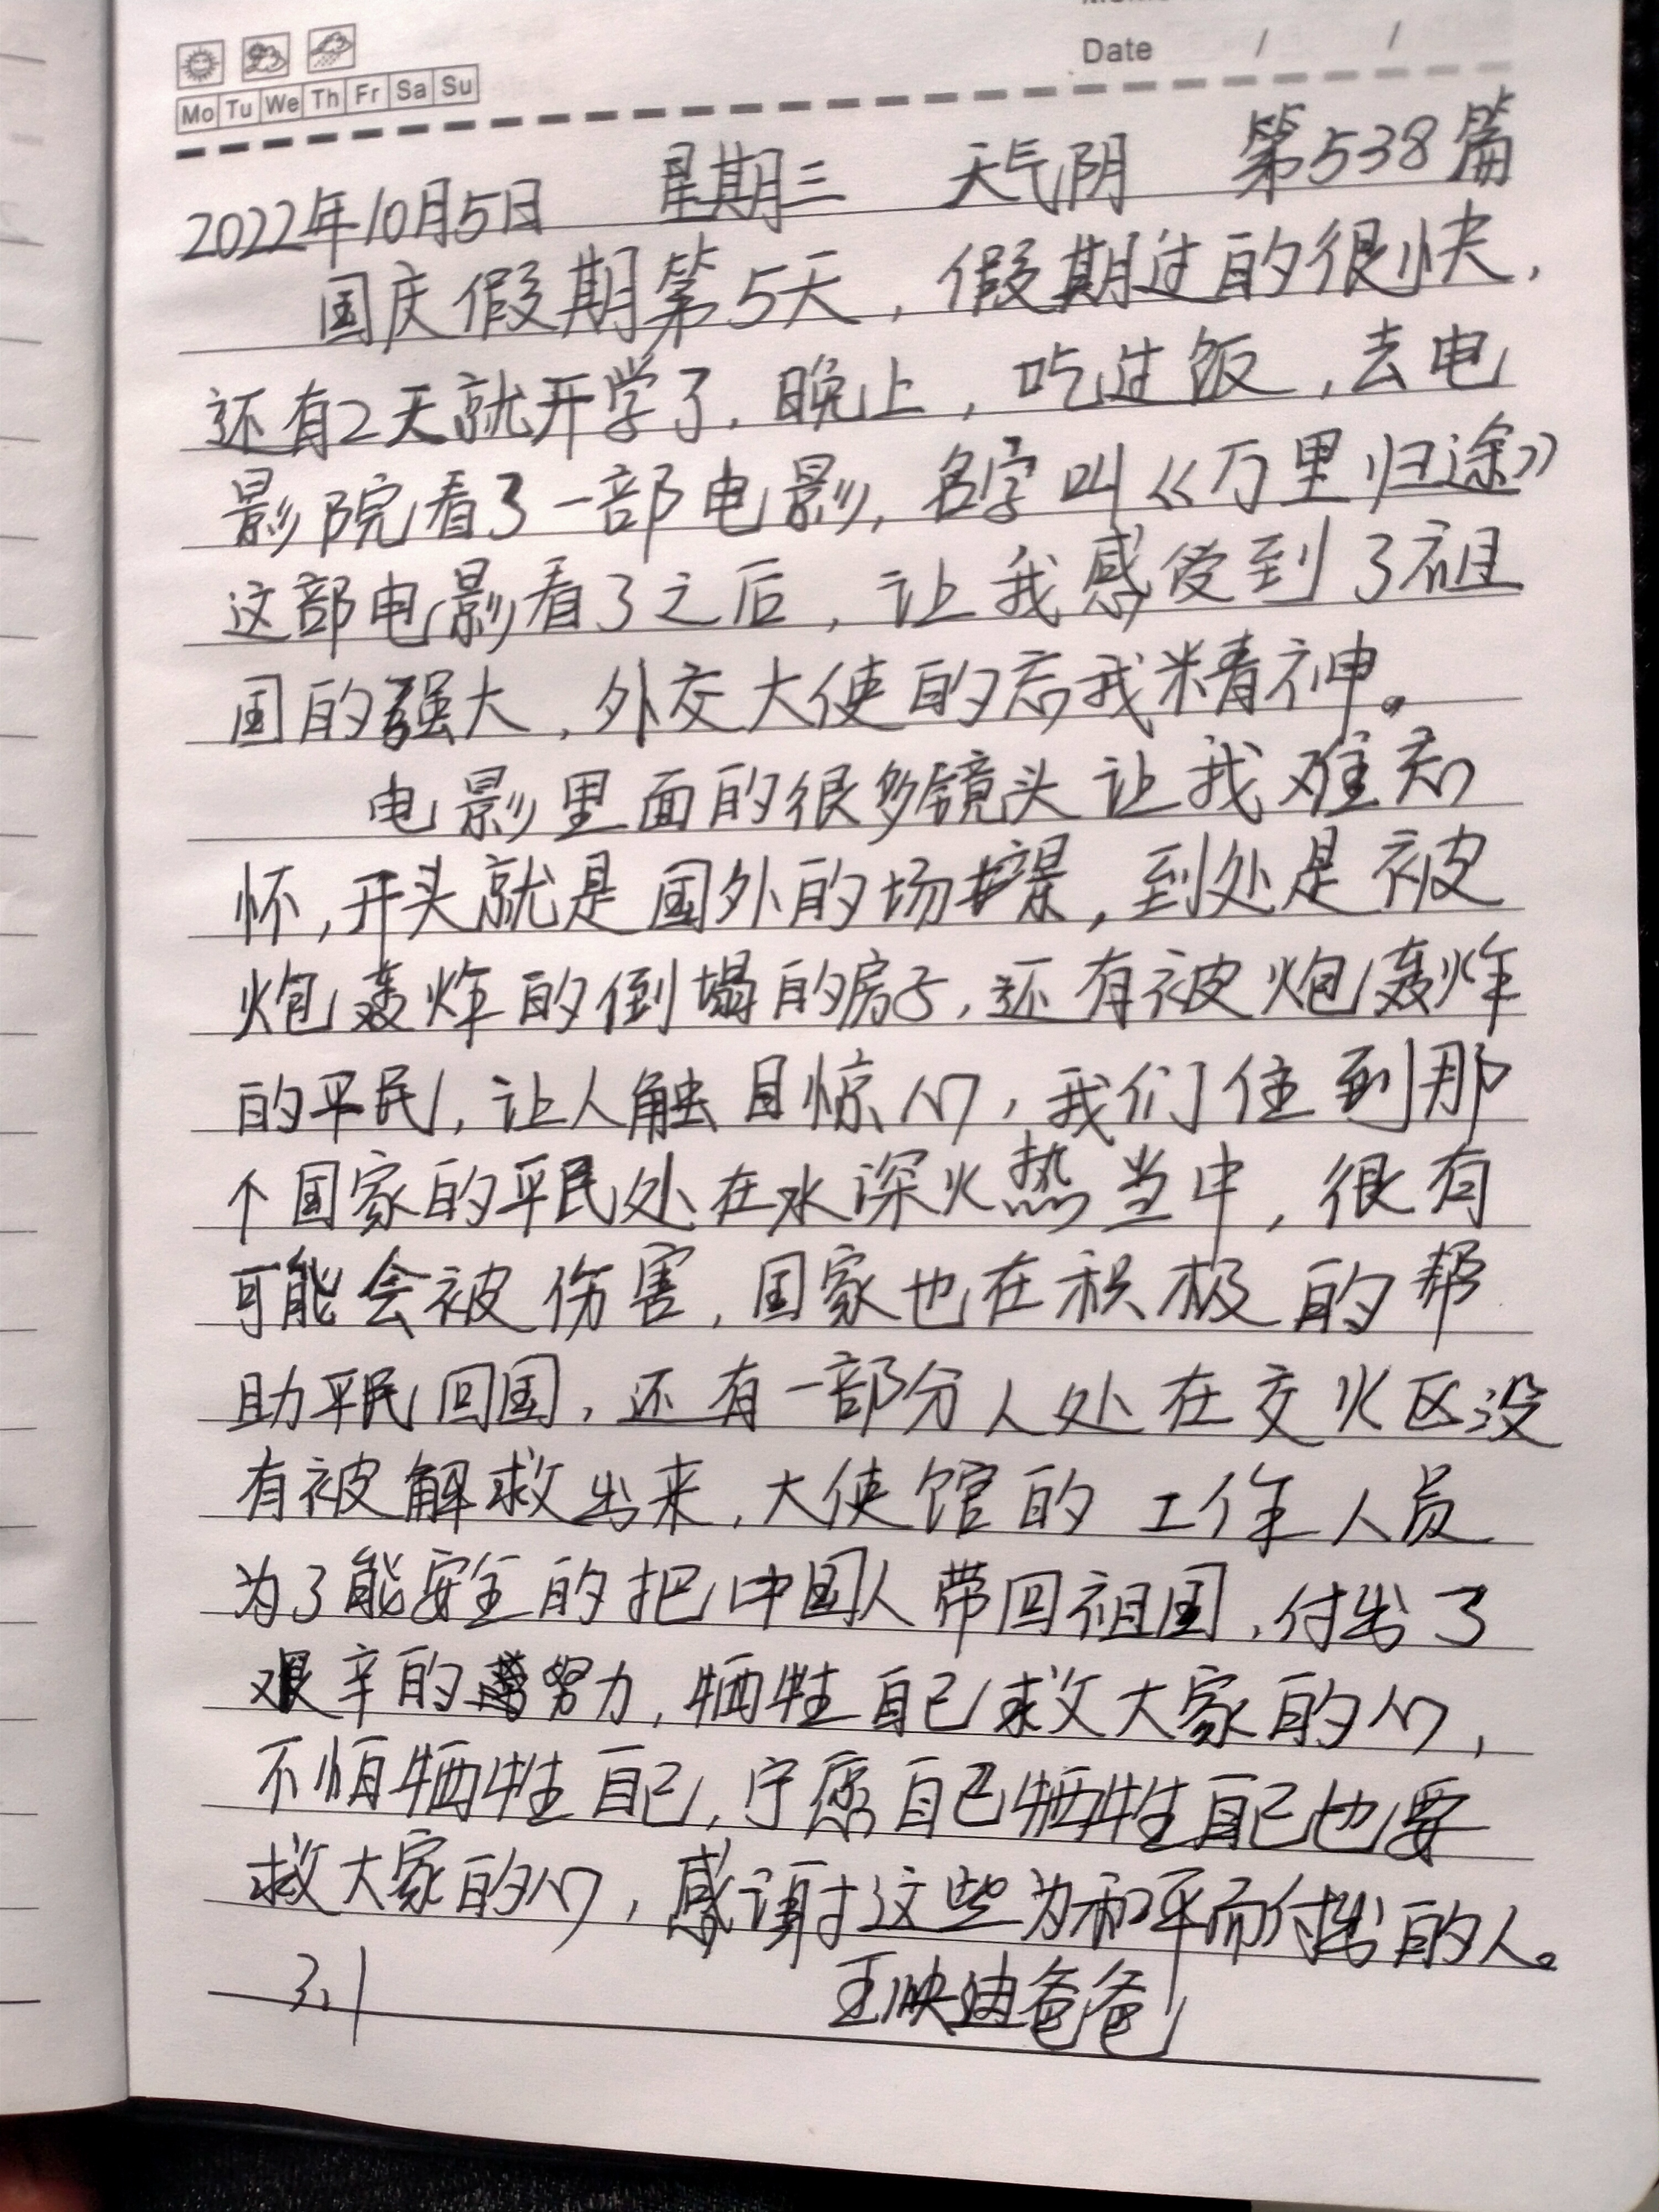 Date / /
Mo Tu We Th Fr Sa Su
2022年10月5日 星期三 天气阴 第538篇
国庆假期第5天,假期过的很快,
还有2天就开学了.晚上,吃过饭,去电
影院看了一部电影,名字叫《万里归途》
这部电影看了之后,让我感受到了祖
国的强大,外交大使的忘我精神。
电影里面的很多镜头让我难忘
怀,开头就是国外的场景,到处是被
炮轰炸的倒塌的房子,还有被炮轰炸
的平民,让人触目惊心,我们住到那
个国家的平民处在水深火热当中,很有
可能会被伤害,国家也在积极的帮
助平民回国,还有一部分人处在交火区没
有被解救出来,大使馆的工作人员
为了能安全的把中国人带回祖国,付出了
艰辛的努力,牺牲自己救大家的心,
不怕牺牲自己,宁愿自己牺牲自己也要
救大家的心,感谢这些为和平而付出的人。
3.1 王映迪爸爸